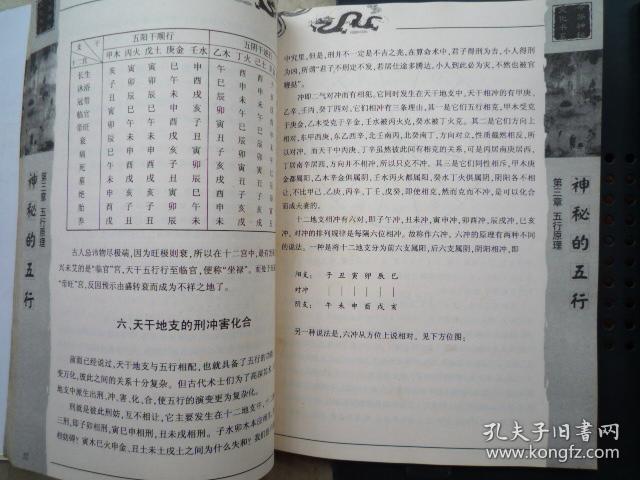 五阳干顺行 五阴干逆行
甲木 丙火 戊土 庚金 壬水 乙木 丁火 己土
长生 亥 寅 寅 巳 申 午 酉 酉
沐浴 子 卯 卯 午 酉 巳 申 申
冠带 丑 辰 辰 未 戌 辰 未 未
临官 寅 巳 巳 申 亥 卯 午 午
帝旺 卯 午 午 酉 子 寅 巳 巳
衰 辰 未 未 戌 丑 丑 辰 辰
病 巳 申 申 亥 寅 子 卯 卯
死 午 酉 酉 子 卯 亥 寅 寅
墓 未 戌 戌 丑 辰 戌 丑 丑
绝 申 亥 亥 寅 巳 酉 子 子
胎 酉 子 子 卯 午 申 亥 亥
养 戌 丑 丑 辰 未 未 戌 戌
古人总讳物尽极端,因为旺极则衰,所以在十二宫中,最有
兴未艾的是“临官”宫,天干五行行至临官,便称“坐禄”。而处于
“帝旺”宫,反因预示由盛转衰而成为不祥之地了。
六、天干地支的刑冲害化合
前面已经说过,天干地支与五行相配,也就具备了五行的
变万化,彼此之间的关系十分复杂。但古代术士们为了
地支中派生出刑、冲、害、化、合,使五行的演变更为复杂化。
刑就是彼此刑妨,互不相让,它主要发生在十二地支中,
三刑,即子卯相刑,寅巳申相刑,丑未戌相刑。子水卯木本
相妨碍?寅木巳火申金、丑土未土戌土之间为什么失和?我们
第三章 五行原理
神秘的五行
中究里,但是,刑并不一定是不吉之兆,在算命术中,君子得刑为吉,小人得刑
为凶,所谓“君子不刑定不发,若居仕途多腾达,小人到此必为灾,不然也被官
鞭挞”。
冲即二气对冲而有相犯,它同时发生在天干地支中,天干相冲的有甲庚、
乙辛、壬丙、癸丁四对,它们相冲有三条理由,其一是它们五行相克,甲木受克
于庚金,乙木受克于辛金,壬水被丙火克,癸水被丁火克。其二是它们方向上
相对,东甲西庚,东乙西辛,北壬南丙,北癸南丁,方向对立,性质截然相反,所
以对冲。而天干中丙庚、丁辛虽然彼此间有相克的关系,可是丙居南庚居西,
丁居南辛居西,方向并不相冲,所以只克不冲。其三是它们同性相斥,甲木庚
金都属阳,乙木辛金俱属阴,壬水丙火都属阳,癸水丁火俱属阴,阴阳各不相
让,不比甲己、乙庚、丙辛、丁壬、戊癸,即便相克,然而克也不冲,是可以化合
而成夫妻的。
十二地支相冲有六对,即子午冲,丑未冲,寅申冲,卯酉冲,辰戌冲,巳亥
冲,对冲的排列规律是每隔六位相冲。故称作六冲。六冲的原理有两种不同
的说法。一种是将十二地支分为前六支属阳,后六支属阴,阴阳相冲,即
子 丑 寅 卯 辰 巳
对冲
阴支: 午 未 申 酉 戌 亥
另一种说法是,六冲从方位上说相对。见下方位图:
第三章 五行原理
神秘的五行
孔夫子旧书网